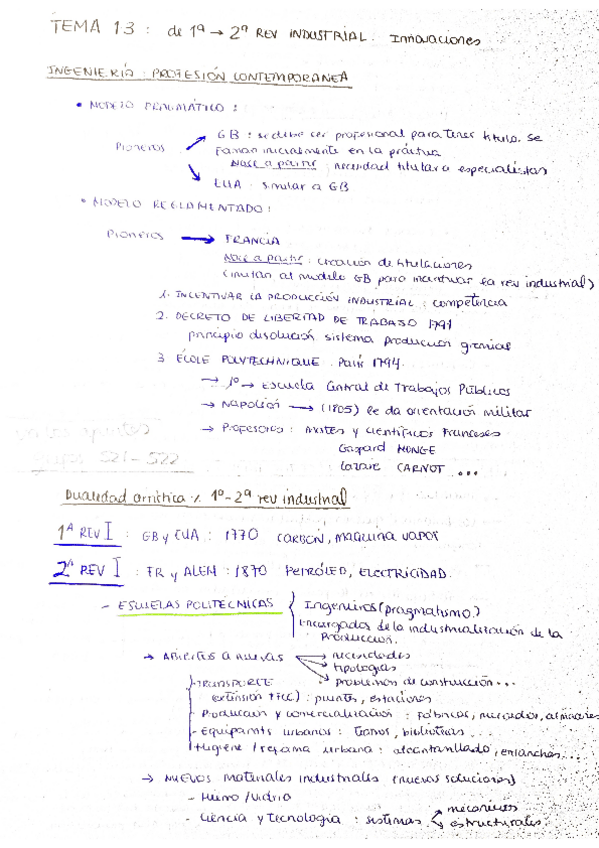 TEMA 13 : de 1ª → 2ª REV INDUSTRIAL. Innovaciones
INGENIERÍA : PROFESIÓN CONTEMPORANEA
• MODELO PRAGMÁTICO :
Pioneros
GB : se debe ser profesional para tener titulo. Se
forman inicialmente en la práctica
Nace a partir : necesidad titular a especialistas
EUA : similar a GB
• MODELO REGLAMENTADO :
Pioneros → FRANCIA
Nace a partir : creación de titulaciones
(imitan al modelo GB para incentivar la rev industrial)
1. INCENTIVAR LA PRODUCCIÓN INDUSTRIAL : competencia
2. DECRETO DE LIBERTAD DE TRABAJO 1791
principio disolución sistema produccion gremios
3 ÉCOLE POLYTECHNIQUE . París 1794.
→ 1º → Escuela Central de Trabajos Públicos
→ NAPOLEÓN → (1805) le da orientación militar
→ Profesores : mates y científicos franceses
Gaspard MONGE
Lazare CARNOT ...
521 - 522
Dualidad artística % 1ª - 2ª rev industrial
1ª REV I : GB y EUA : 1770 CARBÓN, MAQUINA VAPOR
2ª REV I : FR y ALEM : 1870 PETRÓLEO, ELECTRICIDAD.
- ESCUELAS POLITÉCNICAS
Ingenieros (pragmatismo)
Encargados de la industrialización de la
Producción.
→ ABIERTOS A NUEVAS
→ necesidades
→ tipologías
→ problemas de construcción...
- TRANSPORTE
extensión FFCC) : puentes, estaciones
- Produccion y comercialización : fábricas, mercados, almacenes
- Equipamts urbanos : teatros, bibliotecas...
- Higiene / reforma urbana : alcantarillado, ensanches...
→ NUEVOS materiales industriales (nuevas soluciones)
- Hierro / Vidrio
- Ciencia y tecnología : sistemas
mecánicos
estructurales